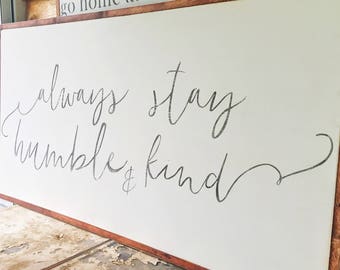 go home
always stay
humble & kind